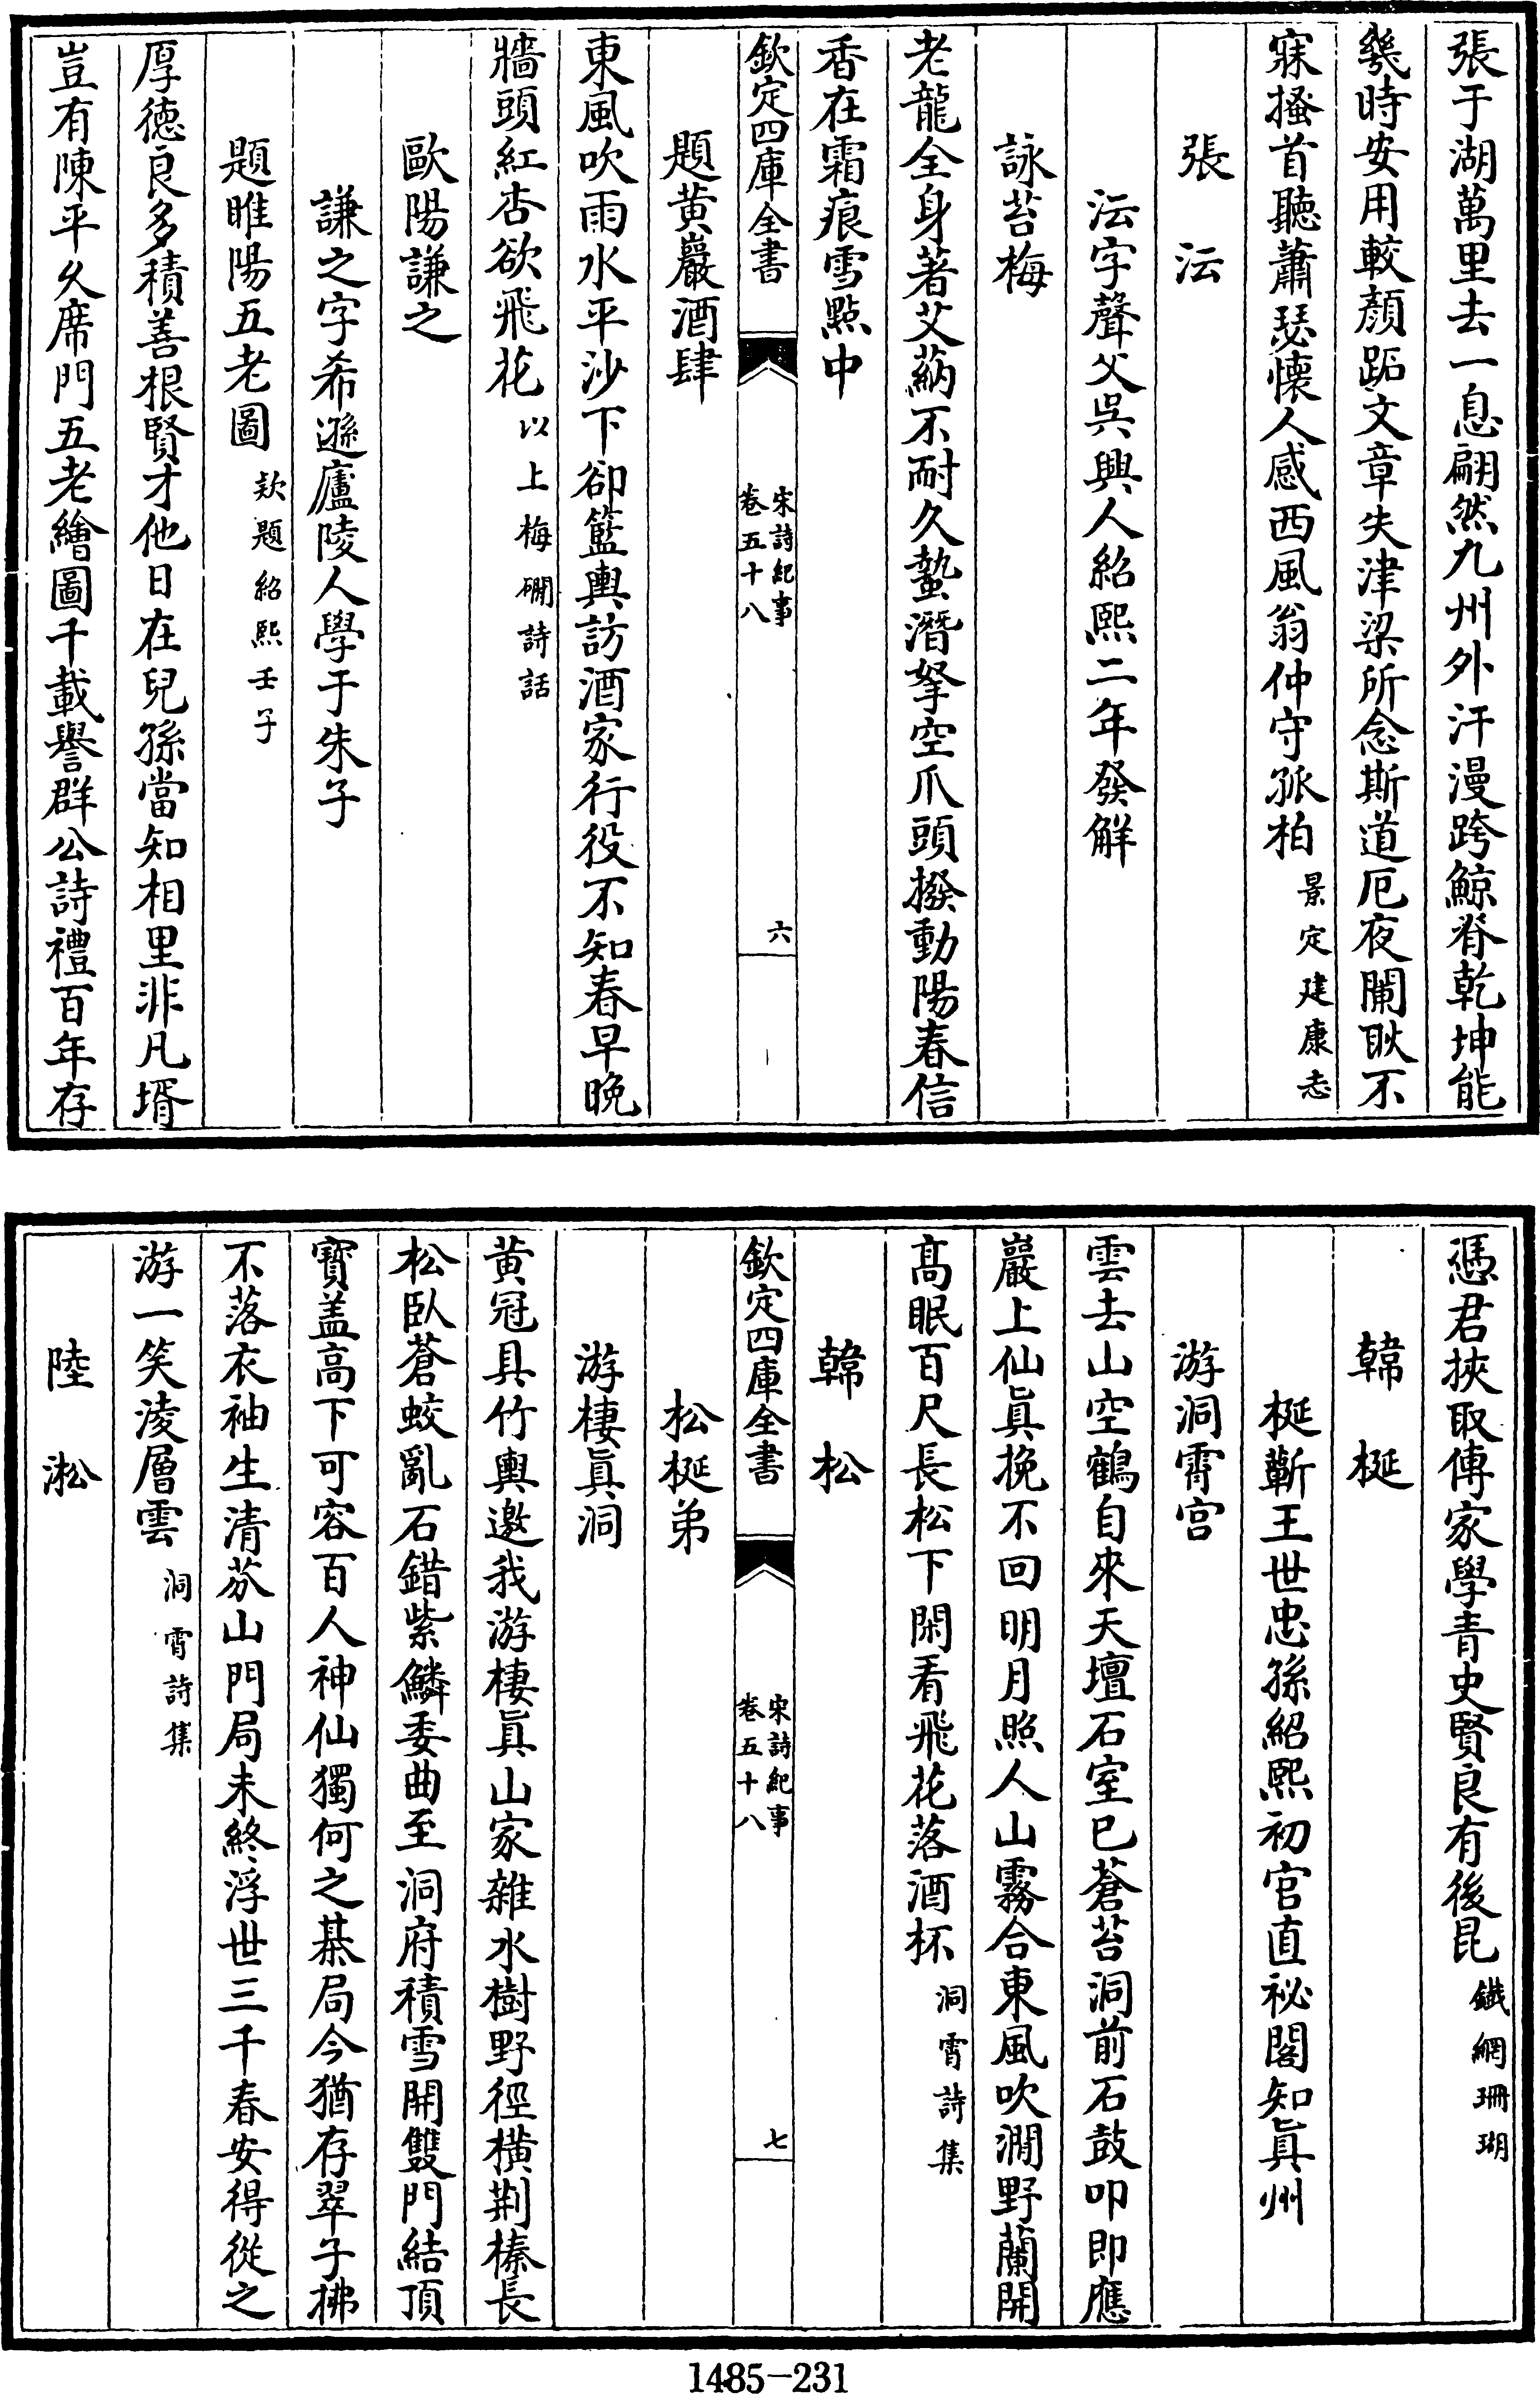 張于湖萬里去一息翩然九州外汗漫跨鯨脊乾坤能
幾時安用較顏跖文章失津梁所念斯道厄夜闌耿不
寐搔首聽蕭瑟懷人感西風翁仲守孤柏景定建康志
張沄
沄字聲父吳興人紹熙二年發解
詠苔梅
老龍全身著艾蒳不耐久蟄潛拏空爪頭撥動陽春信
香在霜痕雪點中
欽定四庫全書
宋詩紀事
卷五十八
六
題黄巖酒肆
東風吹雨水平沙下卻籃輿訪酒家行役不知春早晩
牆頭紅杏欲飛花以上梅磵詩話
歐陽謙之
謙之字希遜廬陵人學于朱子
題睢陽五老圖欵題紹熙壬子
厚徳良多積善根賢才他日在兒孫當知相里非凡壻
豈有陳平久席門五老繪圖千載譽群公詩禮百年存
憑君挾取傳家學青史賢良有後昆鐵網珊瑚
韓梴
梴蘄王世忠孫紹熙初官直祕閣知眞州
游洞霄宫
雲去山空鶴自來天壇石室已蒼苔洞前石鼓叩即應
巖上仙眞挽不回明月照人山霧合東風吹澗野蘭開
髙眠百尺長松下閑看飛花落酒杯洞霄詩集
韓松
欽定四庫全書
宋詩紀事
卷五十八
七
松梴弟
游棲眞洞
黄冠具竹輿邀我游棲眞山家雜水樹野徑橫荆榛長
松臥蒼蛟亂石錯紫鱗委曲至洞府積雪開雙門結頂
寳盖高下可容百人神仙獨何之棊局今猶存翠子拂
不落衣袖生清芬山門局未終浮世三千春安得從之
游一笑淩層雲洞霄詩集
陸淞
1485-231